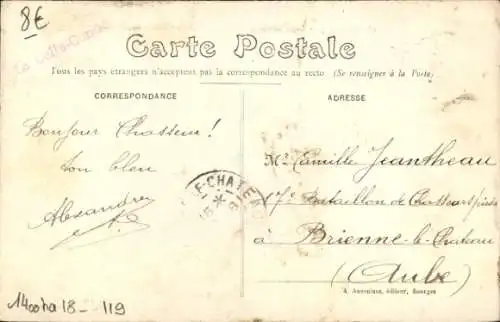 8€
La Celle-Condé
Carte Postale
Tous les pays étrangers n'acceptent pas la correspondance au recto (Se renseigner à la Poste)
CORRESPONDANCE
Bonjour Chasseur!
ton bleu
Alexandre
ADRESSE
Mr Camille Jeantheau
17e Bataillon de Chasseurs à pieds
à Brienne-le-Chateau
(Aube)
A. Auxenfans, éditeur, Bourges
1400ha 18 - 119